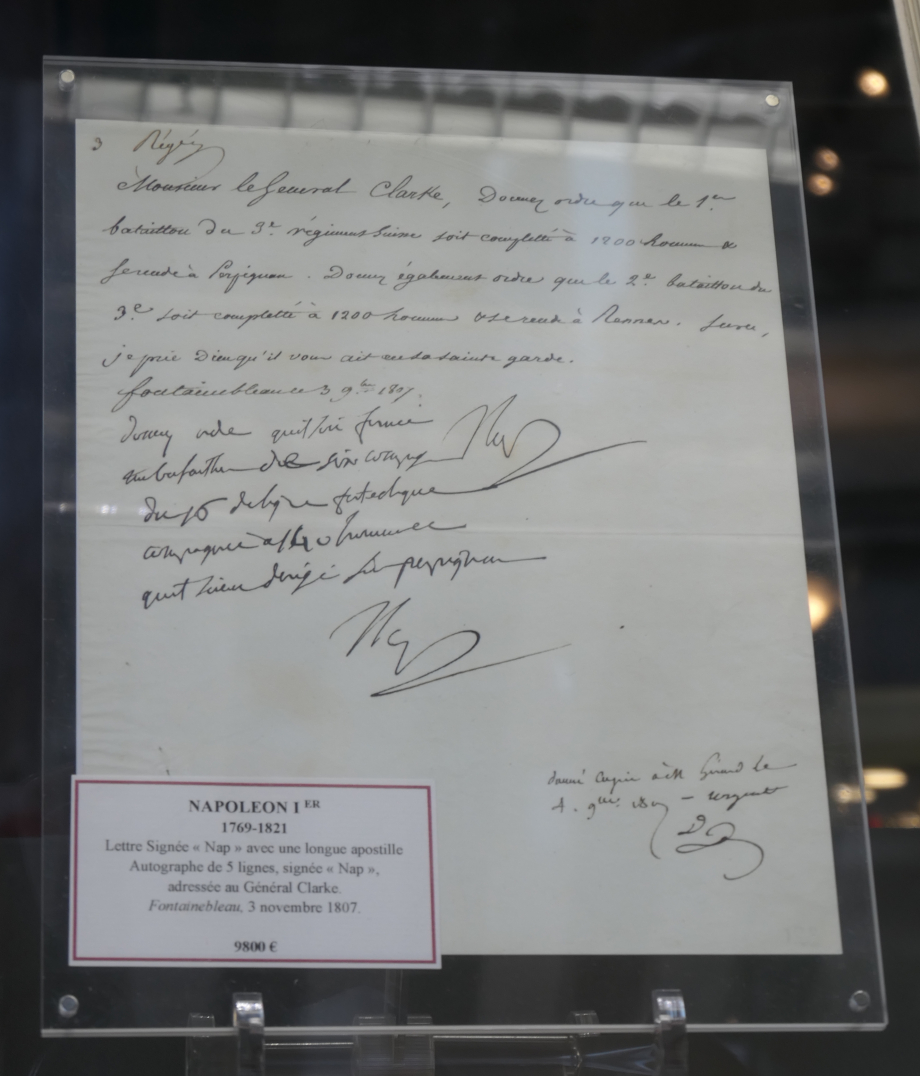 3
Monsieur le General Clarke, Donnez ordre que le 1er
bataillon du 3e régiment Suisse soit completté à 1200 hommes &
se rende à Perpignan. Donnez également ordre que le 2e bataillon du
3e soit completté à 1200 hommes & se rende à Rennes. Sur ce,
je prie Dieu qu'il vous ait en sa sainte garde.
fontainebleau ce 3 9bre 1807.
donnez ordre qu'il soit formé
un bataillon de six
du 16 de ligne
compagnie a 140 hommes
Nap
Nap
donné copie à M Girard le
4. 9bre 1807 – urgente
NAPOLEON IER
1769-1821
Lettre Signée « Nap » avec une longue apostille
Autographe de 5 lignes, signée « Nap »,
adressée au Général Clarke.
Fontainebleau, 3 novembre 1807.
9800 €